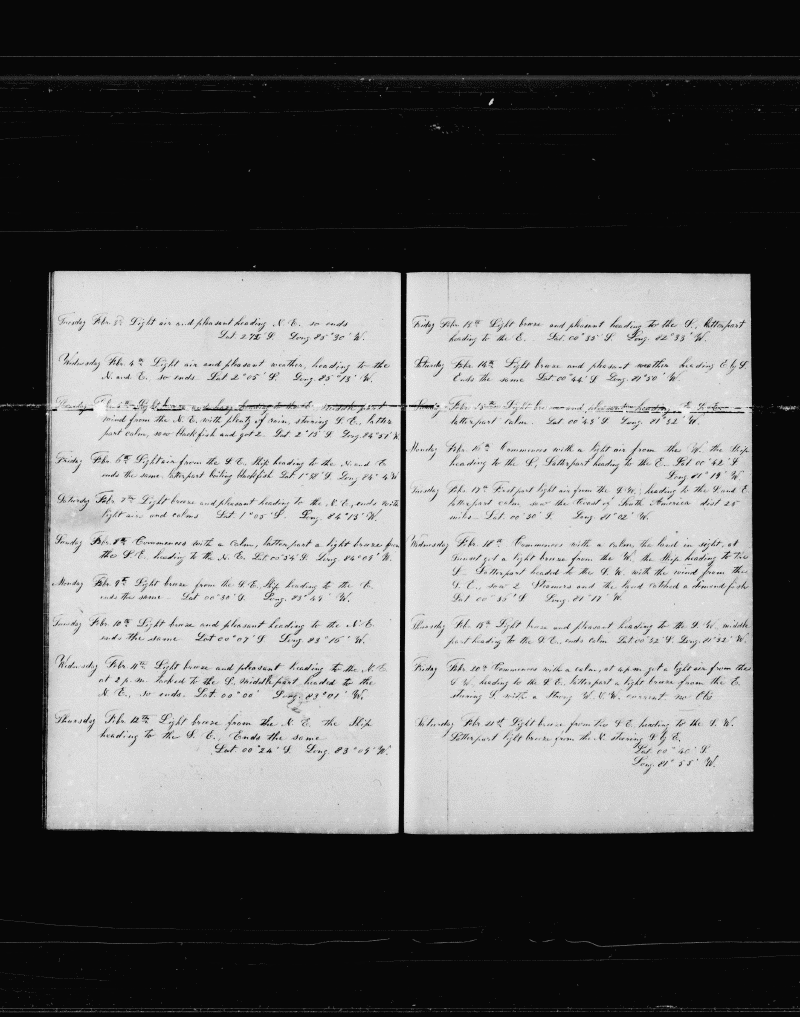 Tuesday Febr. 3d Light air and pleasant heading N. E. so ends
Lat 2 Long 85° 30' W.
Wednesday Febr. 4th Light air and pleasant weather, heading to the
N. and E. so ends. Lat 2° 05' S. Long. 85° 13' W.
Thursday Febr 5th Light breeze and hazy heading to the E. Middle part
wind from the N. E. with plenty of rain, steering S. E., latter
part calm, saw blackfish and got 2. Lat 2° 13' S Long. 84° 31' W
Friday Febr 6th Light air from the S. E. Ship heading to the N. and E
ends the same, latterpart boiling blackfish Lat 1° S Long 84° W
Saturday Febr. 7th Light breeze and pleasant heading to the N. E., ends with
light air and calms Lat. 1° 05' S. Long. 84° 13' W.
Sunday Febr 8th Commences with a calm, latterpart a light breeze from
the S. E. heading to the N. E. Lat 00° 54' S Long. 84° 03' W.
Monday Febr 9th Light breeze from the S. E. Ship heading to the E.
ends the same - Lat 00° 30' S. Long. 83° 44' W.
Tuesday Febr 10th Light breeze and pleasant heading to the N. E.
ends the same Lat 00° 07' S Long 83° 16' W.
Wednesday Febr 11th Light breeze and pleasant heading to the N. E
at 2 p.m. tacked to the S., middle part, headed to the
N. E., so ends. Lat: 00° 00' Long. 83° 01' W.
Thursday Febr 12th Light breeze from the N. E. the Ship
heading to the S. E., Ends the same
Lat 00° 24' S. Long. 83° 03' W.
Friday Febr 13th Light breeze and pleasant heading to the S., latterpart
heading to the E. Lat. 00° 35' S. Long. 82° 33' W.
Saturday Febr 14th Light breeze and pleasant weather heading E by S.
Ends the same Lat 00° 44' S Long. 81° 50' W.
Sunday Febr 15th Light breeze and pleasant heading
latterpart calm. Lat 00° 43' S Long. 81° 32' W.
Monday Febr 16th Commences with a light air from the W. the Ship
heading to the S., Latterpart heading to the E. Lat 00° 42' S
Long. 81° 19' W.
Tuesday Febr. 17th First part light air from the S. W., heading to the S. and E.
latterpart calm saw the Coast of South America dist 25
miles Lat. 00° 30' S. Long. 81° 02' W.
Wednesday Febr 18th Commences with a calm, the land in sight, at
sunset got a light breeze from the W. the Ship heading to the
S. - Latterpart headed to the S. W. with the wind from the
S. E., saw 2 Steamers and the land catched a
Lat 00° 35' S Long. 81° 17' W.
Thursday Feb. 19th Light breeze and pleasant heading to the S. W., middle
part heading to the S. E., ends calm Lat 00° 32' S. Long. 81° 32' W.
Friday Feb. 20th Commences with a calm, at 4 p.m. got a light air from the
S. W. heading to the S. E., latterpart a light breeze from the E.
steering S. with a strong W. N. W. current. no Obs
Saturday Febr 21st Light breeze from the S. E. heading to the S. W.
Latterpart light breeze from the N. steering S. by E.
Lat. 00° 40' S.
Long. 81° 55' W.